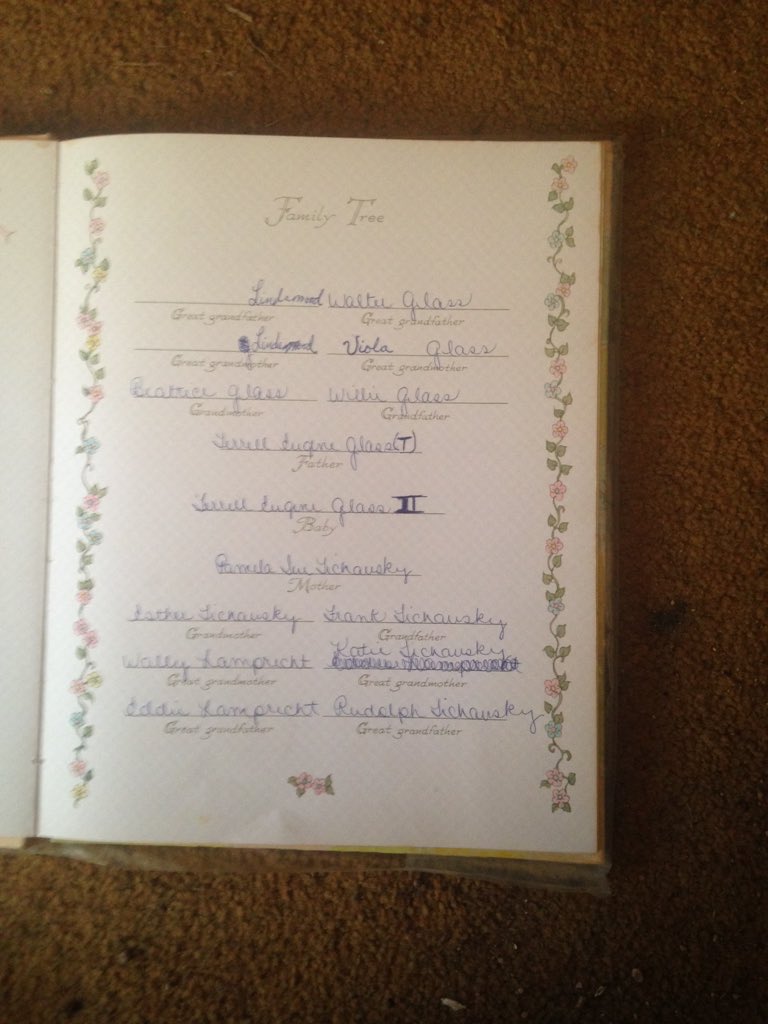 Family Tree
Lindemood Walter Glass
Great grandfather Great grandfather
Lindemood Viola Glass
Great grandmother Great grandmother
Beatrice Glass Willie Glass
Grandmother Grandfather
Terrell Eugene Glass (I)
Father
Terrell Eugene Glass II
Baby
Pamela Sue Tichausky
Mother
Esther Tichausky Frank Tichausky
Grandmother Grandfather
Katie Tichausky
Wally Lampricht
Great grandmother Great grandmother
Eddie Lampricht Rudolph Tichausky
Great grandfather Great grandfather